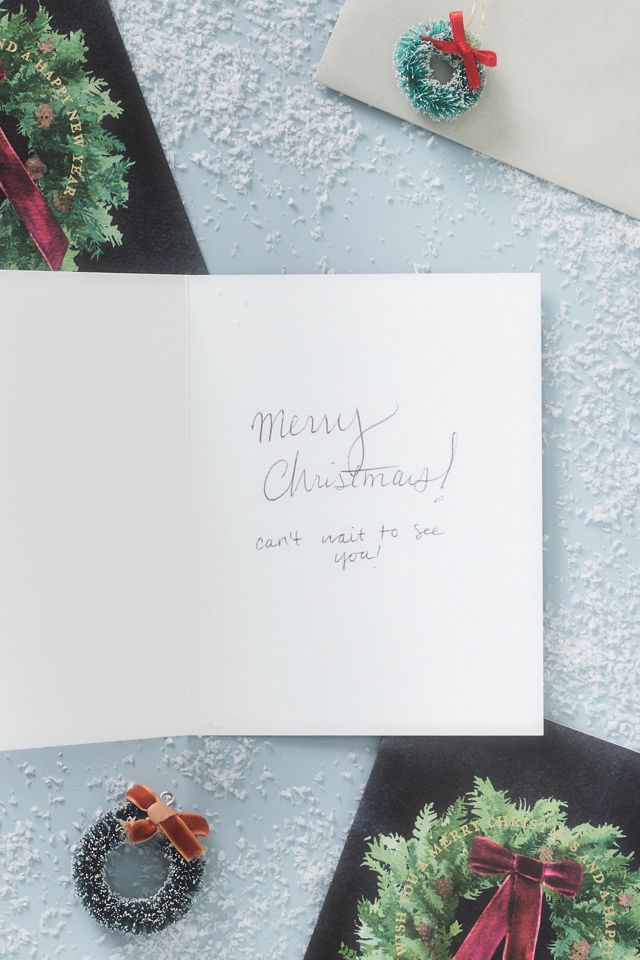 ND A HAPPY NEW YEAR
Merry
Christmas!
can't wait to see
you!
WISH YOU A MERRY CHRISTMAS AND A HAPPY